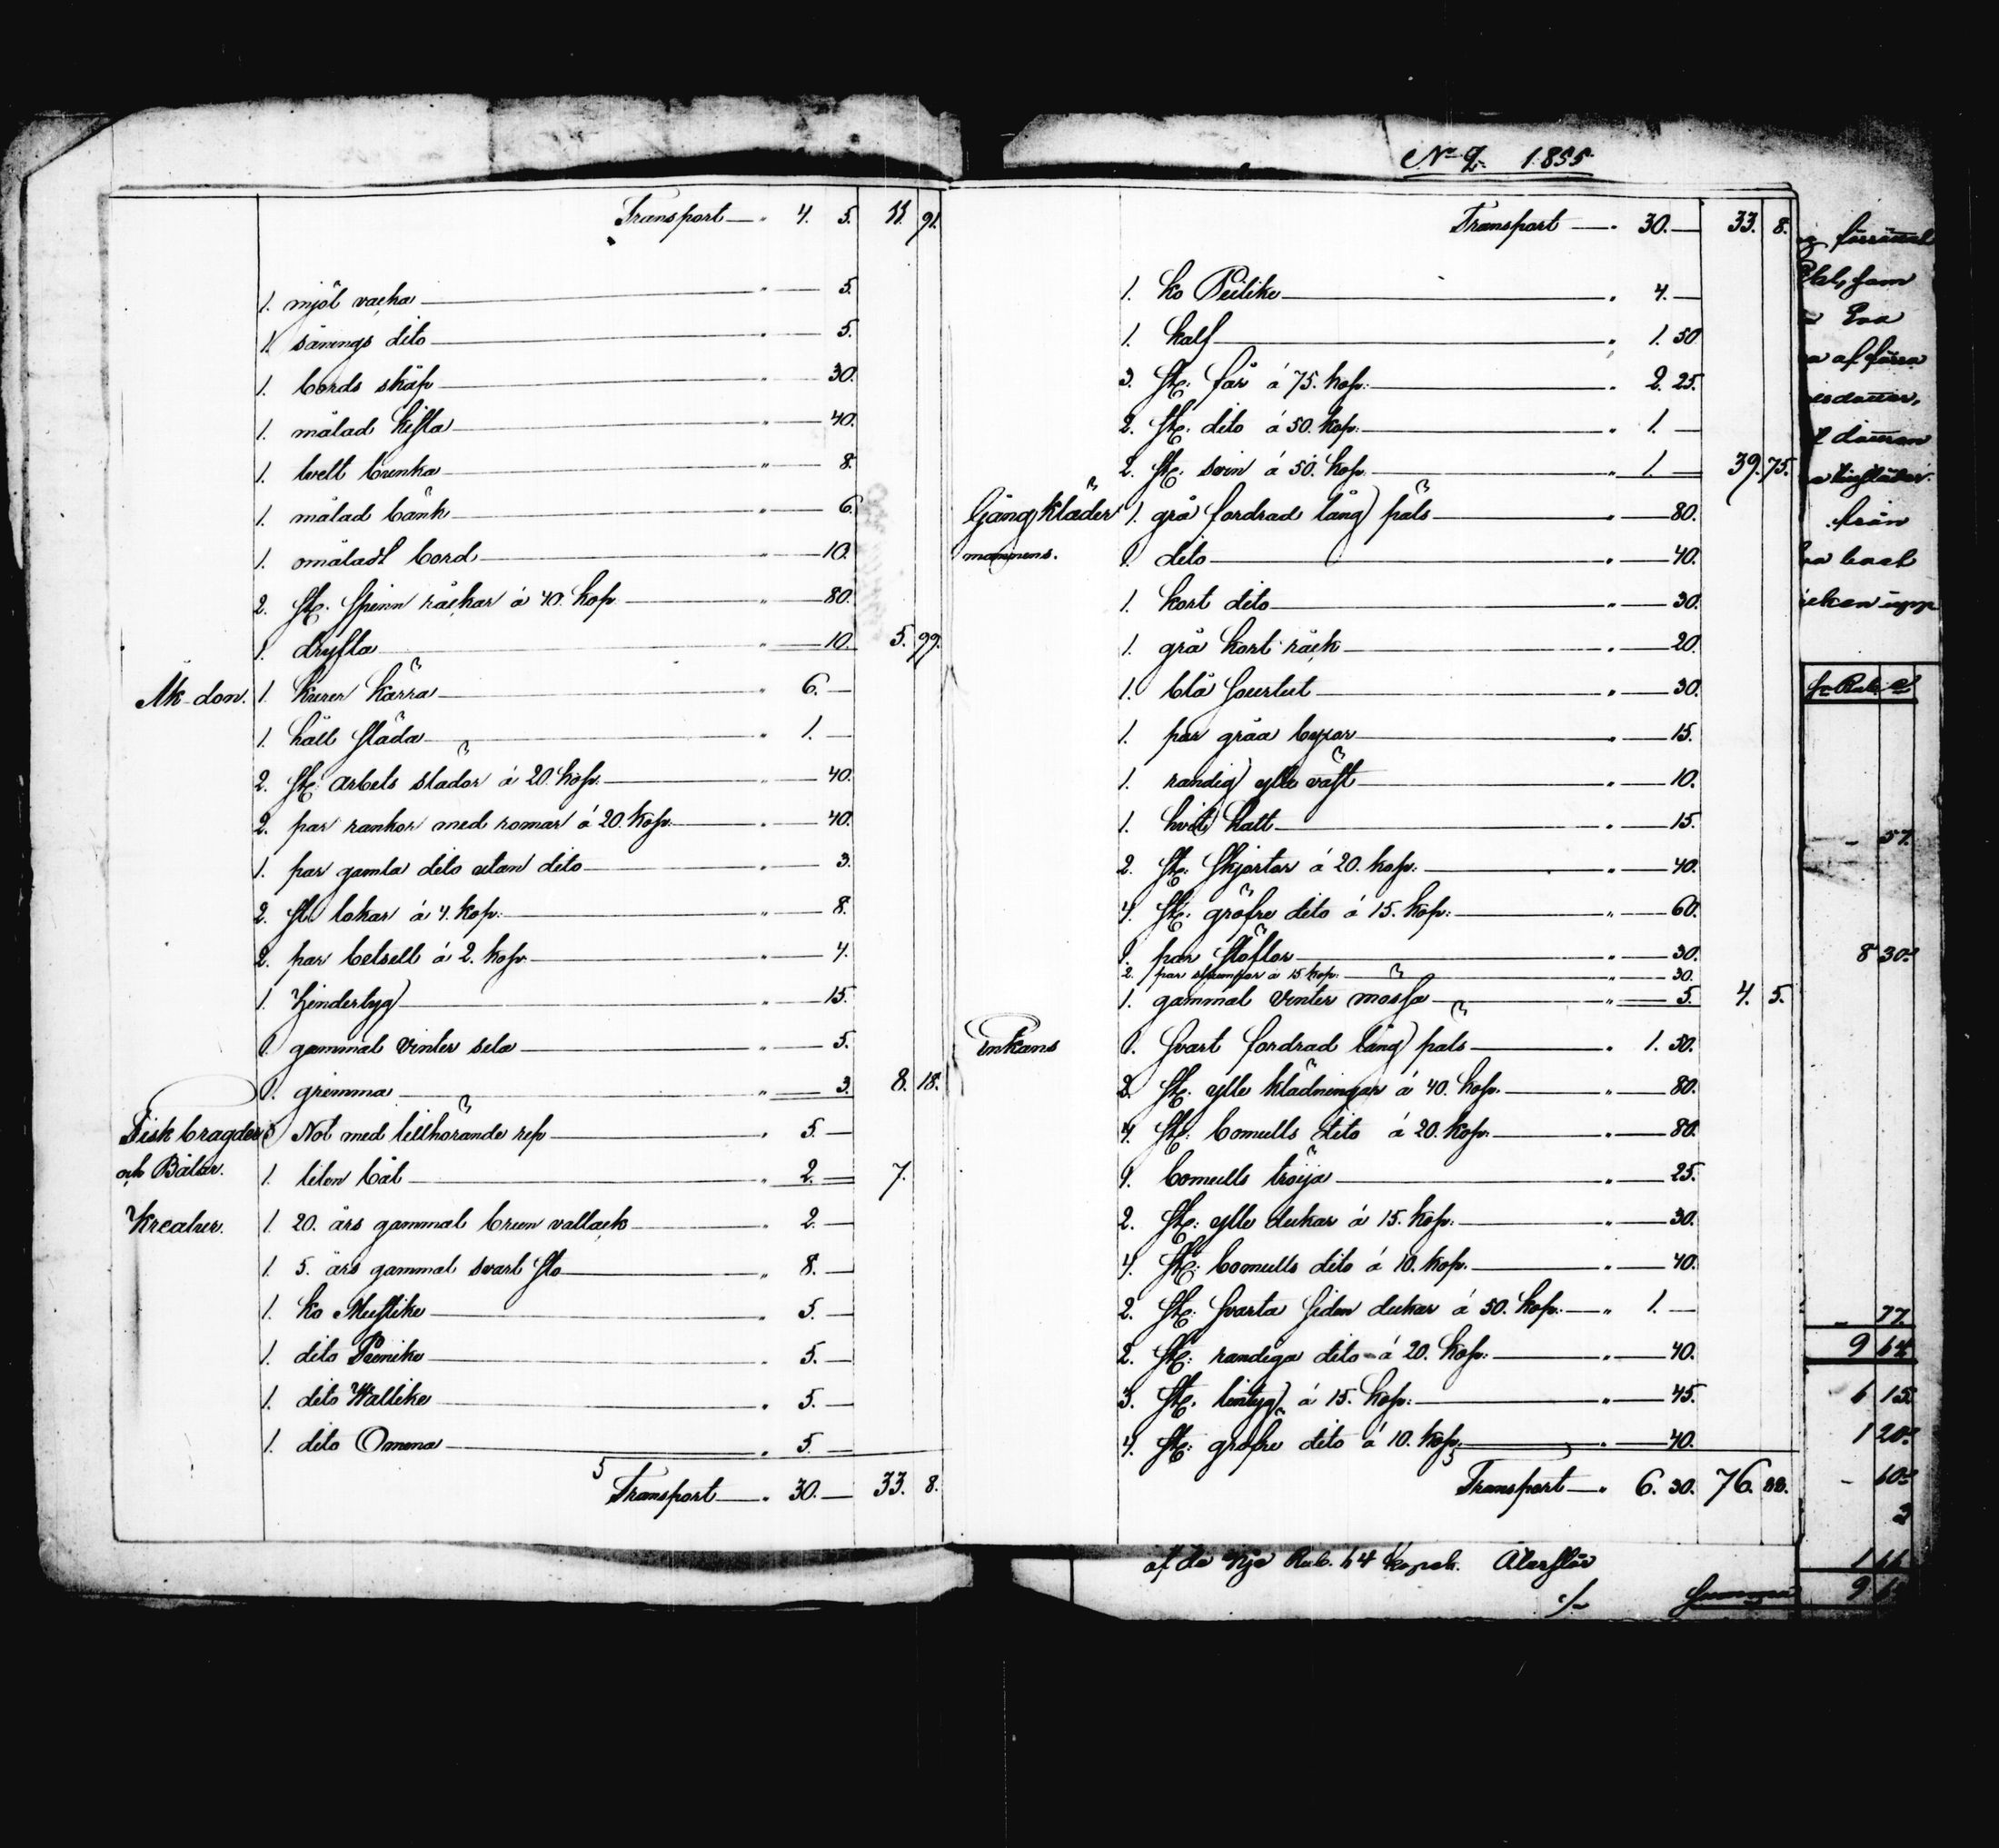 Transport — " 4. 5. 11. 91.
1. mjöl vacka — " — 5.
1. sånings dito — " — 5.
1. bords skåp — " — 30.
1. målad kista — " — 40.
1. tvett bunka — " — 8.
1. målad bänk — " — 6.
1. omåladt bord — " — 10.
2. st: spinn råckar á 40. kop — " — 80.
1. dryfta — " — 10. 5. 99.
Åk-don. 1. kurer kärra — " 6. —
1. håll släda — " 1. —
2. st: arbets slädor á 20. kop. — " — 40.
2. par rankor med romar á 20. kop. — " — 40.
1. par gamla dito utan dito — " — 3.
2. st. lokar á 4. kop: — " — 8.
2. par betsell á 2. kop. — " — 4.
1. hindertyg — " — 15.
1. gammal vinter sela — " — 5.
1. grimma — " — 3. 8. 18.
Fisk bragder 1. Not med tillhörande rep — " 5. —
och Båtar. 1. liten båt — " 2. — 7.
Kreatur. 1. 20. års gammal brun vallack — " 2. —
1. 5. års gammal svart sto — " 8. —
1. ko Mustike — " 5. —
1. dito Punike — " 5. —
1. dito Wallike — " 5. —
1. dito Omena — " 5. —
Transport — " 30. — 33. 8.
No 2. 1855.
Transport — " 30. — 33. 8.
1. ko Peilike — " 4. —
1. kalf — " 1. 50
3. st: får á 75. kop: — " 2. 25.
2. st. dito á 50. kop: — " 1. —
2. st: svin á 50. kop. — " 1. — 39. 75.
Gång kläder 1. grå fordrad lång päls — " — 80.
mannens. 1. dito — " — 40.
1. kort dito — " — 30.
1. grå kort råck — " — 20.
1. blå surtut — " — 30.
1. par gråa byxor — " — 15.
1. randig ylle väst — " — 10.
1. hvit hatt — " — 15.
2. st: skjortor á 20. kop: — " — 40.
4. st: gröfre dito á 15. kop: — " — 60.
1. par stöflor — " — 30.
2. par strumpor á 15 kop: — " — 30.
1. gammal vinter mössa — " — 5. 4. 5.
Enkans 1. svart fordrad lång päls — " 1. 30.
2. st: ylle klädningar á 40. kop. — " — 80.
4. st: bomulls dito á 20. kop. — " — 80.
1. bomulls tröija — " — 25.
2. st: ylle dukar á 15. kop: — " — 30.
4. st: bomulls dito á 10. kop. — " — 40.
2. st: svarta siden dukar á 50. kop: — " 1. —
2. st: randiga dito á 20. kop: — " — 40.
3. st: lintyg á 15. kop: — " — 45.
4. st: gröfre dito á 10. kop. — " — 40.
Transport — " 6. 30. 76. 88.
af förra
från
57.
8 30
77.
9 64
6 15
1 20
60
2
1 66
af de nije Rub. 64 kopek. Återstår
Summa